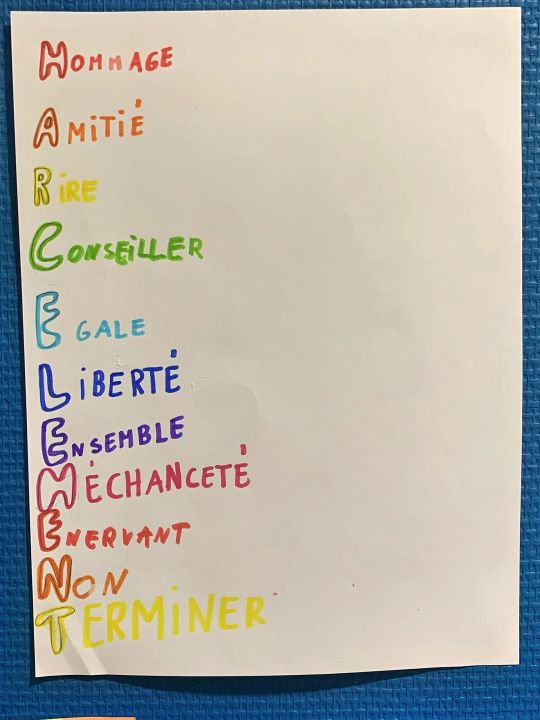 HOMMAGE
AMiTiÉ
RiRE
CONSEiLLER
EGALE
LiBERTÉ
ENSEMBLE
MÉCHANCETÉ
ENERVANT
NON
TERMiNER